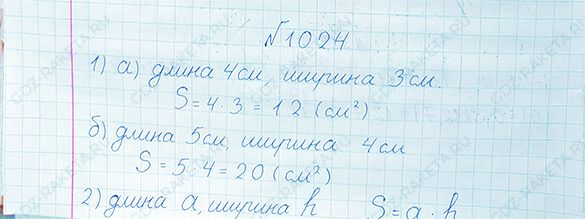 №1024
1) а) длина 4см, ширина 3см.
S = 4 · 3 = 12 (см²)
б) длина 5см, ширина 4см
S = 5 · 4 = 20 (см²)
2) длина a, ширина h S = a · h